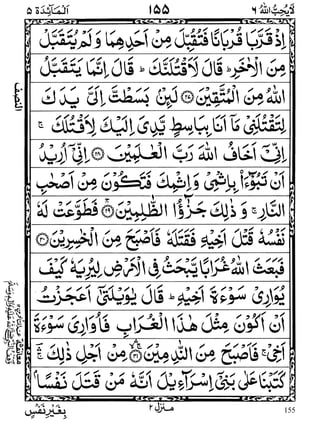 لَا يُحِبُّ اللّٰهُ ٦
١٥٥
اَلْمَآئِدَة ٥
اِذْ قَرَّبَا قُرْبَانًا فَتُقُبِّلَ مِنْ اَحَدِهِمَا وَلَمْ يُتَقَبَّلْ
مِنَ الْاٰخَرِ ؕ قَالَ لَاَقْتُلَنَّكَ ؕ قَالَ اِنَّمَا يَتَقَبَّلُ
اللّٰهُ مِنَ الْمُتَّقِيْنَ ﴿۲۷﴾ لَئِنْۢ بَسَطْتَّ اِلَيَّ يَدَكَ
لِتَقْتُلَنِيْ مَاۤ اَنَا بِبَاسِطٍ يَّدِيَ اِلَيْكَ لِاَقْتُلَكَ ۚ
اِنِّيْۤ اَخَافُ اللّٰهَ رَبَّ الْعٰلَمِيْنَ ﴿۲۸﴾ اِنِّيْۤ اُرِيْدُ
اَنْ تَبُوْٓاَ بِاِثْمِيْ وَاِثْمِكَ فَتَكُوْنَ مِنْ اَصْحٰبِ
النَّارِ ۚ وَذٰلِكَ جَزٰٓؤُا الظّٰلِمِيْنَ ﴿۲۹﴾ فَطَوَّعَتْ لَهٗ
نَفْسُهٗ قَتْلَ اَخِيْهِ فَقَتَلَهٗ فَاَصْبَحَ مِنَ الْخٰسِرِيْنَ ﴿۳۰﴾
فَبَعَثَ اللّٰهُ غُرَابًا يَّبْحَثُ فِي الْاَرْضِ لِيُرِيَهٗ كَيْفَ
يُوَارِيْ سَوْءَةَ اَخِيْهِ ؕ قَالَ يٰوَيْلَتٰۤى اَعَجَزْتُ
اَنْ اَكُوْنَ مِثْلَ هٰذَا الْغُرَابِ فَاُوَارِيَ سَوْءَةَ
اَخِيْ ۚ فَاَصْبَحَ مِنَ النّٰدِمِيْنَ ﴿۳۱﴾ مِنْ اَجْلِ ذٰلِكَ ۛ
كَتَبْنَا عَلٰى بَنِيْۤ اِسْرَآءِيْلَ اَنَّهٗ مَنْ قَتَلَ نَفْسًۢا
بِغَيْرِ نَفْسٍ
منزل ٢
155
النصف